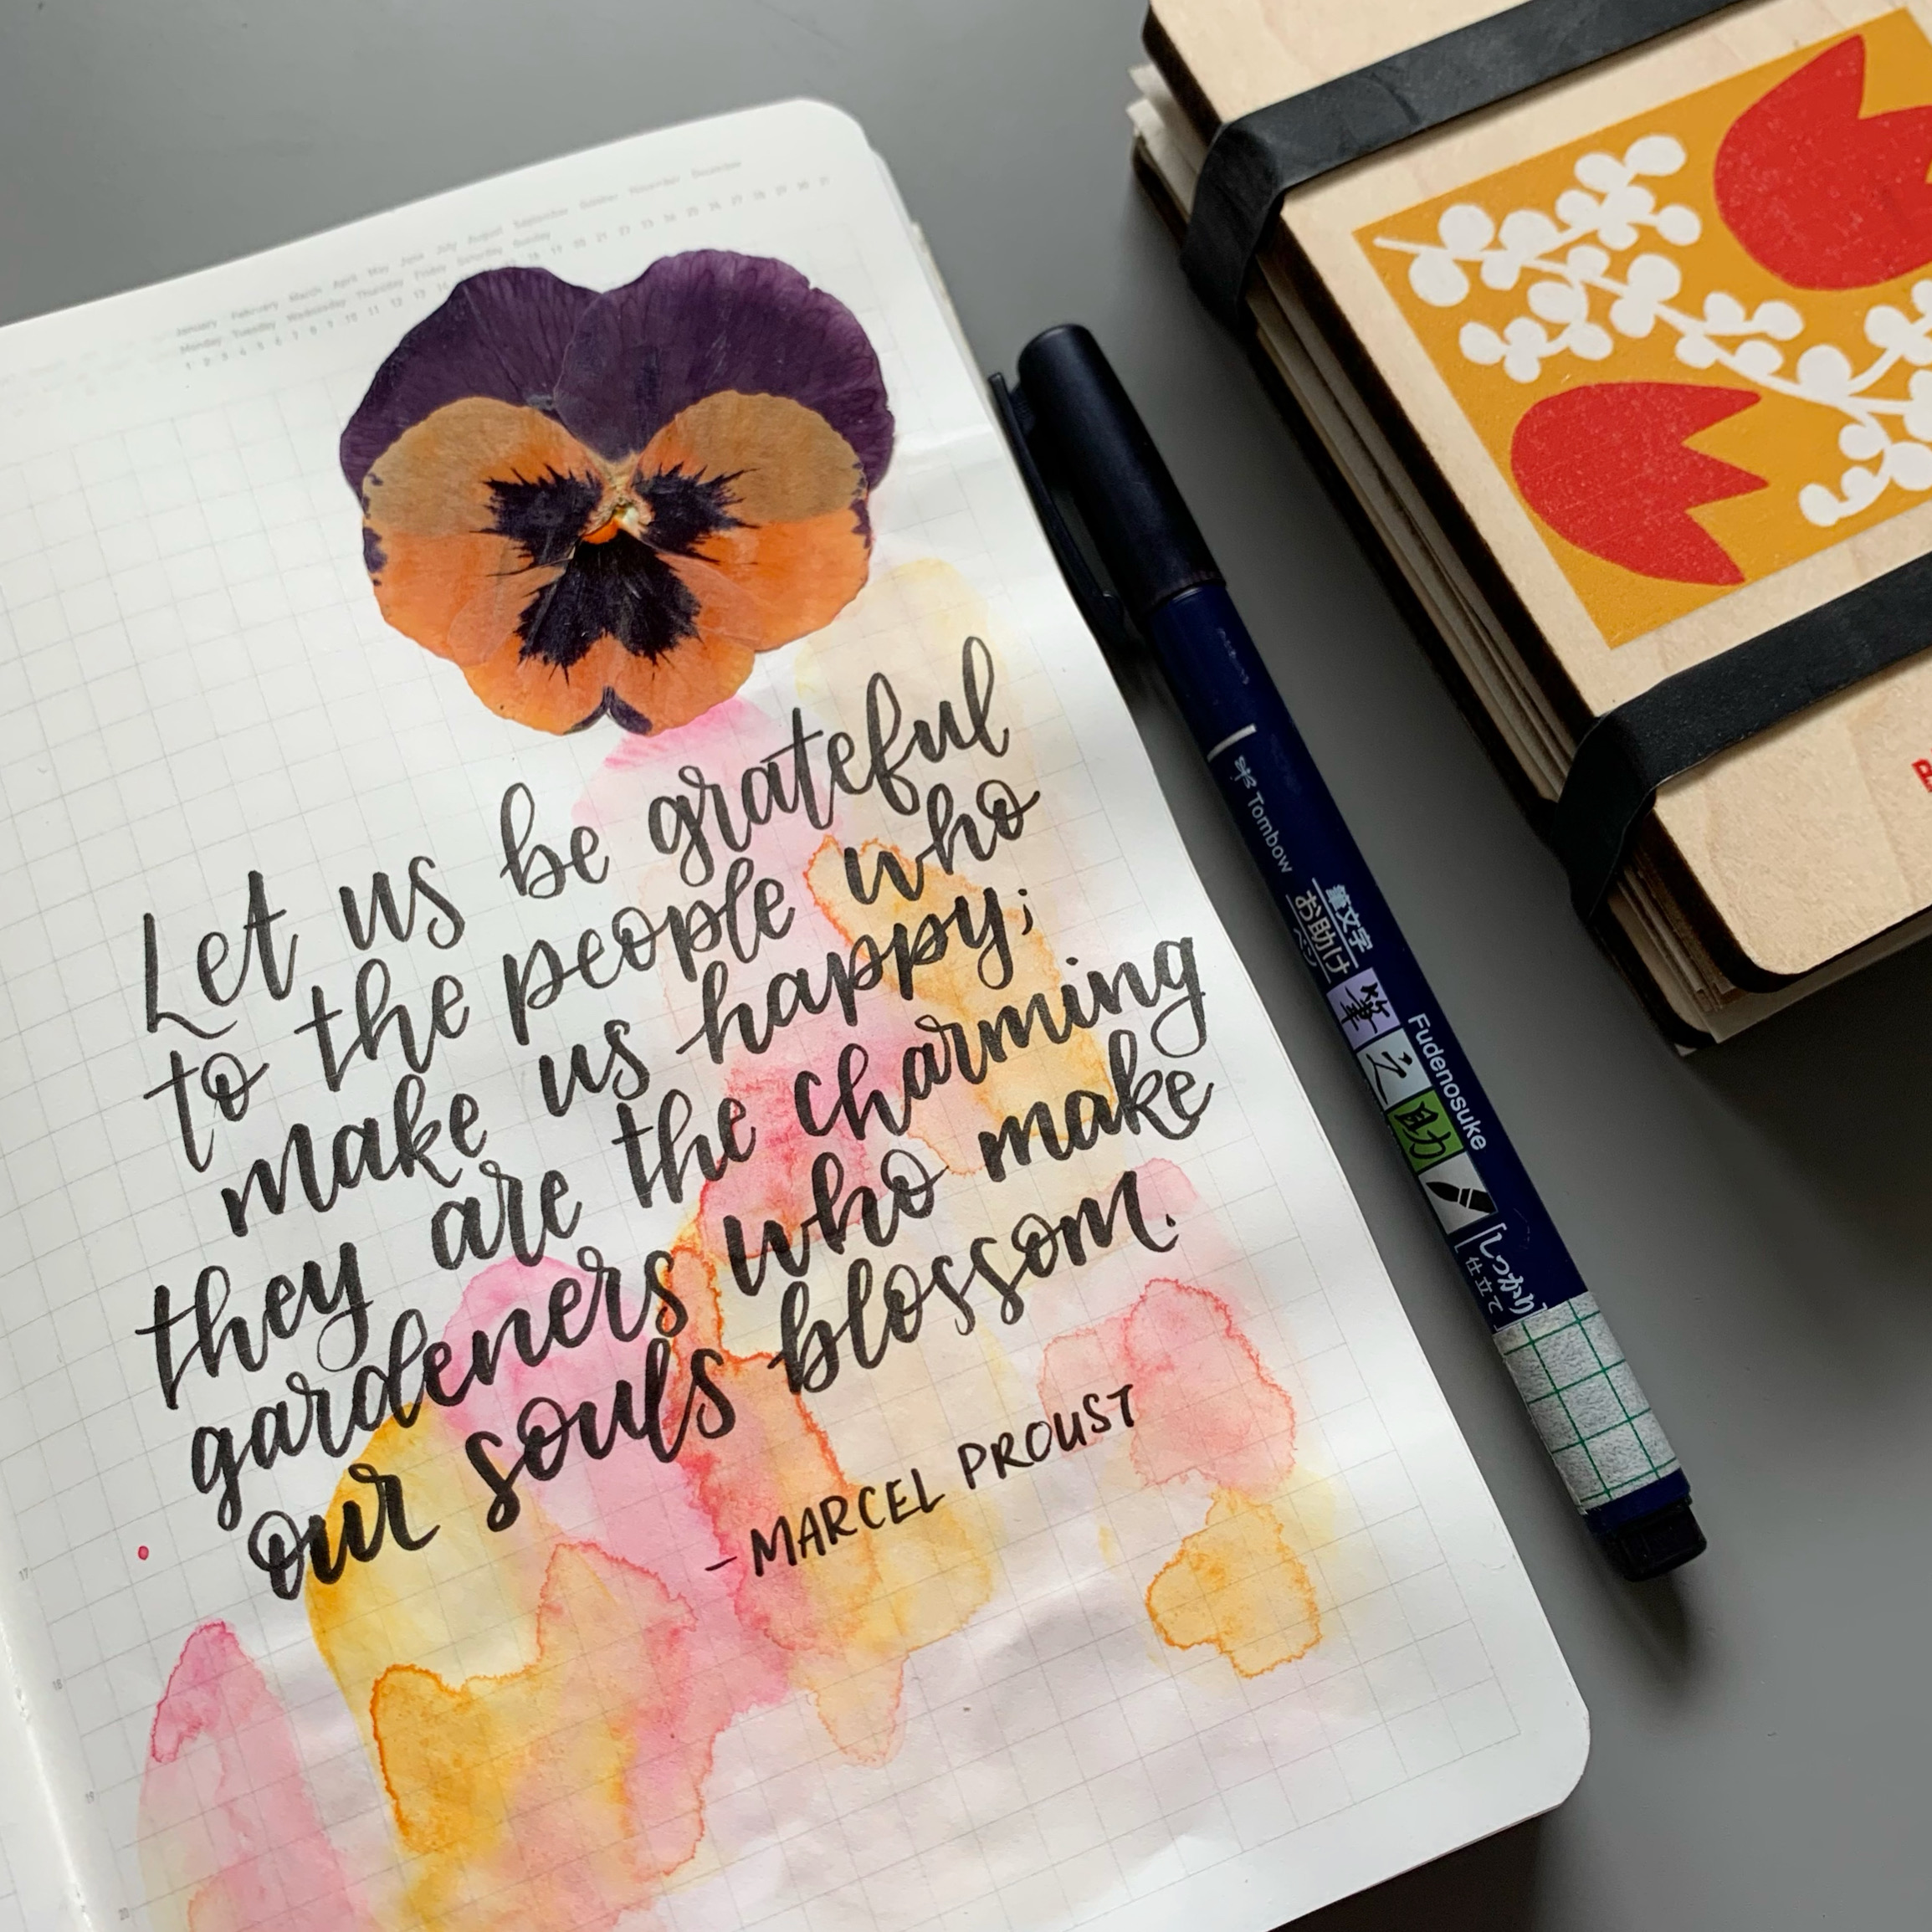 January February March April May June July August September October November December
Monday Tuesday Wednesday Thursday Friday Saturday Sunday
1 2 3 4 5 6 7 8 9 10 11 12 13 14 19 20 21 22 23 24 25 26 27 28 29 30 31
Let us be grateful
to the people who
make us happy;
they are the charming
gardeners who make
our souls blossom.
-MARCEL PROUST
17
18
19
20
Tombow
筆文字
お助け
ペン
筆之助
Fudenosuke
「しっかり」
仕立て